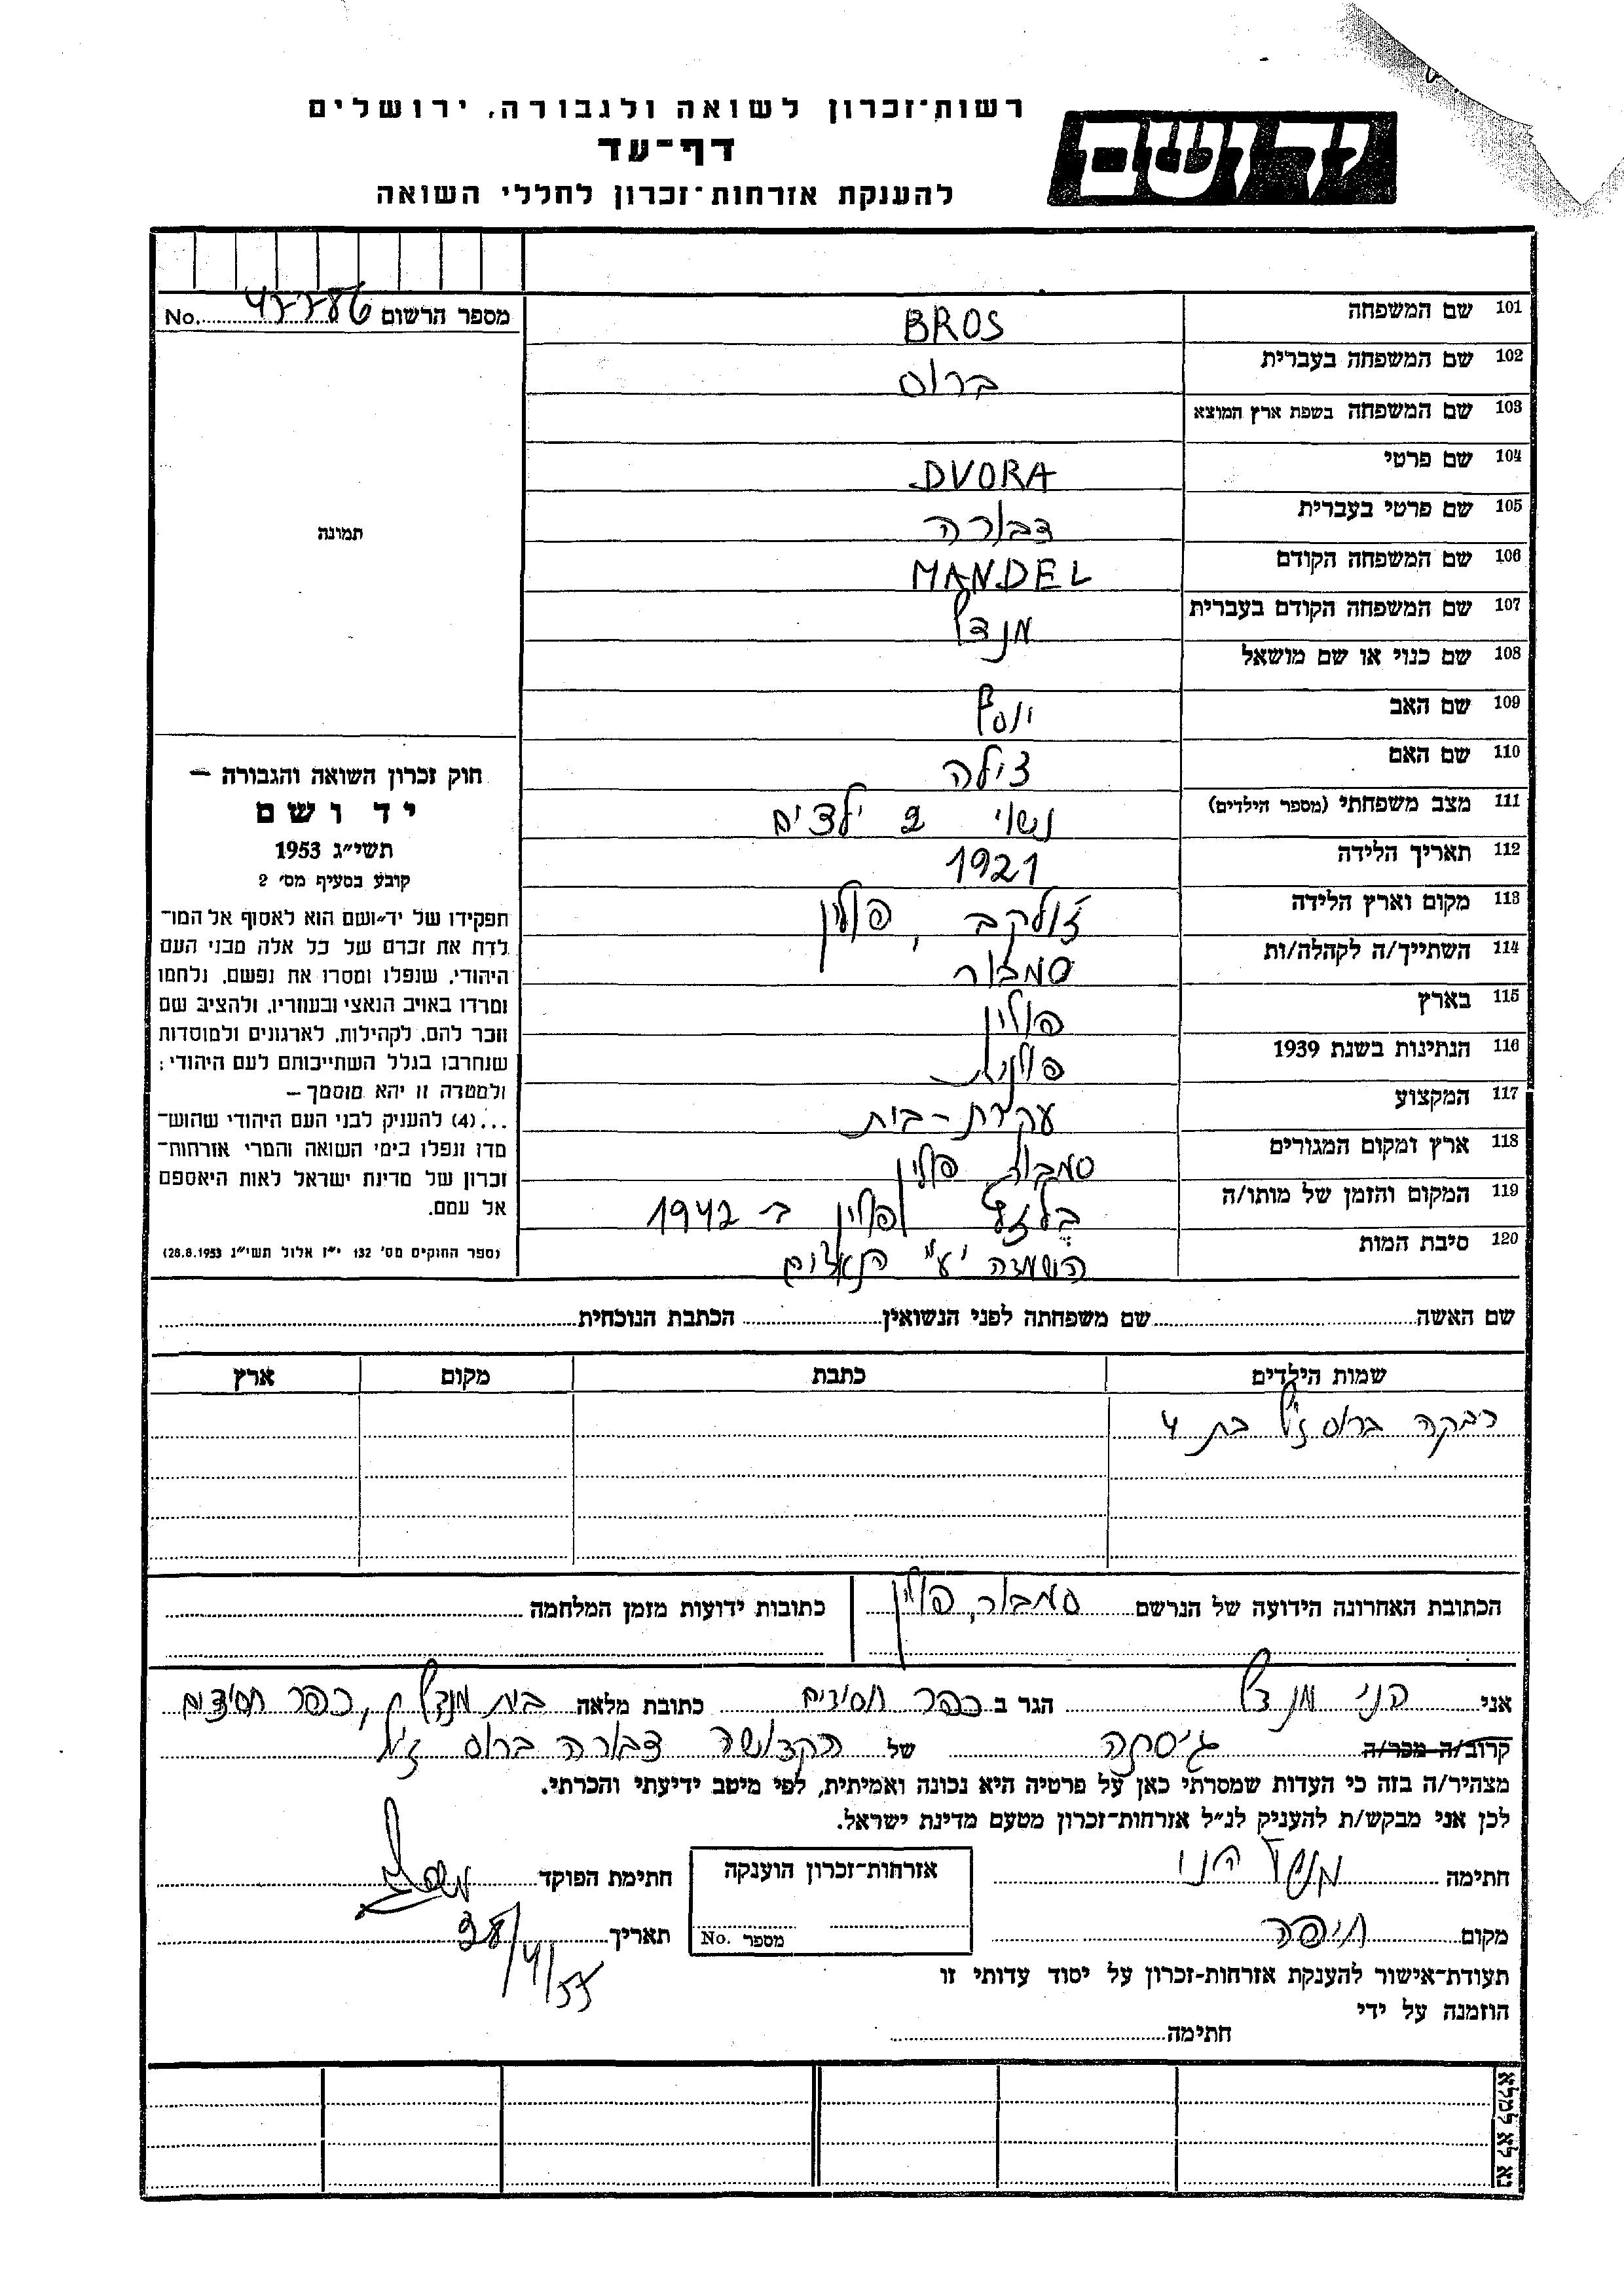 יד ושם
רשות־זכרון לשואה ולגבורה, ירושלים
דף־עד
להענקת אזרחות־זכרון לחללי השואה
מספר הרשום No.
תמונה
101 שם המשפחה BROS
102 שם המשפחה בעברית ברוס
103 שם המשפחה בשפת ארץ המוצא
104 שם פרטי DVORA
105 שם פרטי בעברית דבורה
106 שם המשפחה הקודם MANDEL
107 שם המשפחה הקודם בעברית מנדל
108 שם כנוי או שם מושאל
109 שם האב יוסף
110 שם האם צילה
111 מצב משפחתי (מספר הילדים) נשוי 2 ילדים
112 תאריך הלידה 1921
113 מקום וארץ הלידה ז'ולקב, פולין
114 השתייך/ה לקהלה/ות סמבור
115 בארץ פולין
116 הנתינות בשנת 1939 פולנית
117 המקצוע עקרת-בית
118 ארץ ומקום המגורים סמבור פולין
119 המקום והזמן של מותו/ה בלזץ פולין ב- 1942
120 סיבת המות הושמדה ע"י הנאצים
חוק זכרון השואה והגבורה —
יד ושם
תשי״ג 1953
קובע בסעיף מס׳ 2
תפקידו של יד־ושם הוא לאסוף אל המו־
לדת את זכרם של כל אלה מבני העם
היהודי, שנפלו ומסרו את נפשם, נלחמו
ומרדו באויב הנאצי ובעוזריו, ולהציב שם
וזכר להם, לקהילות, לארגונים ולמוסדות
שנחרבו בגלל השתייכותם לעם היהודי;
ולמטרה זו יהא מוסמך —
...(4) להעניק לבני העם היהודי שהוש־
מדו ונפלו בימי השואה והמרי אזרחות־
זכרון של מדינת ישראל לאות היאספם
אל עמם.
(ספר החוקים מס׳ 132 י״ז אלול תשי״ג 28.8.1953)
שם האשה שם משפחתה לפני הנשואין הכתבת הנוכחית
שמות הילדים כתבת מקום ארץ
רבקה ברוס ז"ל בת 4
הכתובת האחרונה הידועה של הנרשם סמבור, פולין כתובות ידועות מזמן המלחמה
אני הני מנדל הגר ב כפר חסידים כתובת מלאה בית מנדל, כפר חסידים
קרוב/ה מכר/ה גיסתה של הקדושה דבורה ברוס ז"ל
מצהיר/ה בזה כי העדות שמסרתי כאן על פרטיה היא נכונה ואמיתית, לפי מיטב ידיעתי והכרתי.
לכן אני מבקש/ת להעניק לנ״ל אזרחות־זכרון מטעם מדינת ישראל.
חתימה מנדל הני אזרחות־זכרון הוענקה חתימת הפוקד
מקום חיפה מספר No. תאריך
תעודת־אישור להענקת אזרחות־זכרון על יסוד עדותי זו
הוזמנה על ידי
חתימה
נא לא למלא